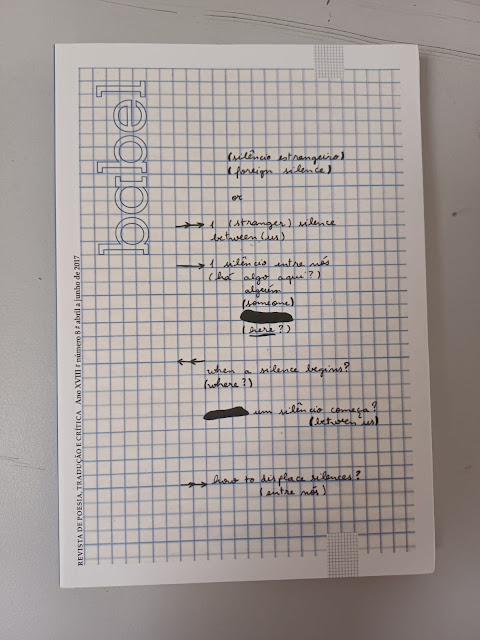 babel
REVISTA DE POESIA, TRADUÇÃO E CRÍTICA Ano XVIII # número 8 # abril a junho de 2017
(silêncio estrangeiro)
(foreign silence)
or
1 (stranger) silence
between (us)
1 silêncio entre nós
(há algo aqui?)
alguém
(someone)
(here?)
when a silence begins?
(where?)
um silêncio começa?
(between us)
how to displace silences?
(entre nós)